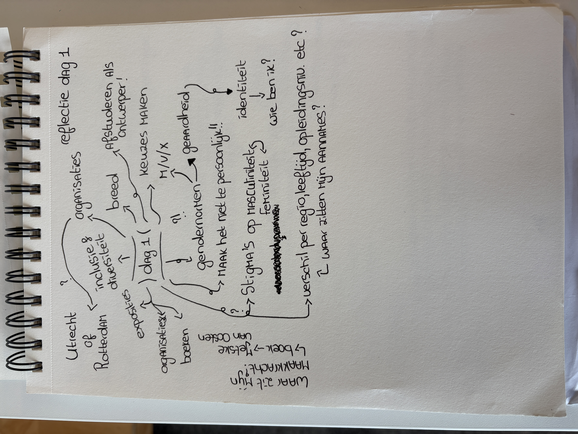 reflectie dag 1
Utrecht
of
Rotterdam
?
organisaties
inclusie &
diversiteit
breed
afstuderen als
ontwerper!
exposities
) dag 1 (
KEUZES MAKEN
M/V/X
organisatie
boeren
?!
gendernormen
geaardheid
MAAK het niet te persoonlijk!!
identiteit
wie ben ik?
?
Stigma's op MASCULINITEIT
Feminiteit
verschil per regio, leeftijd, opleidingsniv. etc?
WAAR zitten Mijn AANNAMES?
WAAR zit Mijn
MAAKKRACHT?
boek → Jetske
van Oosten